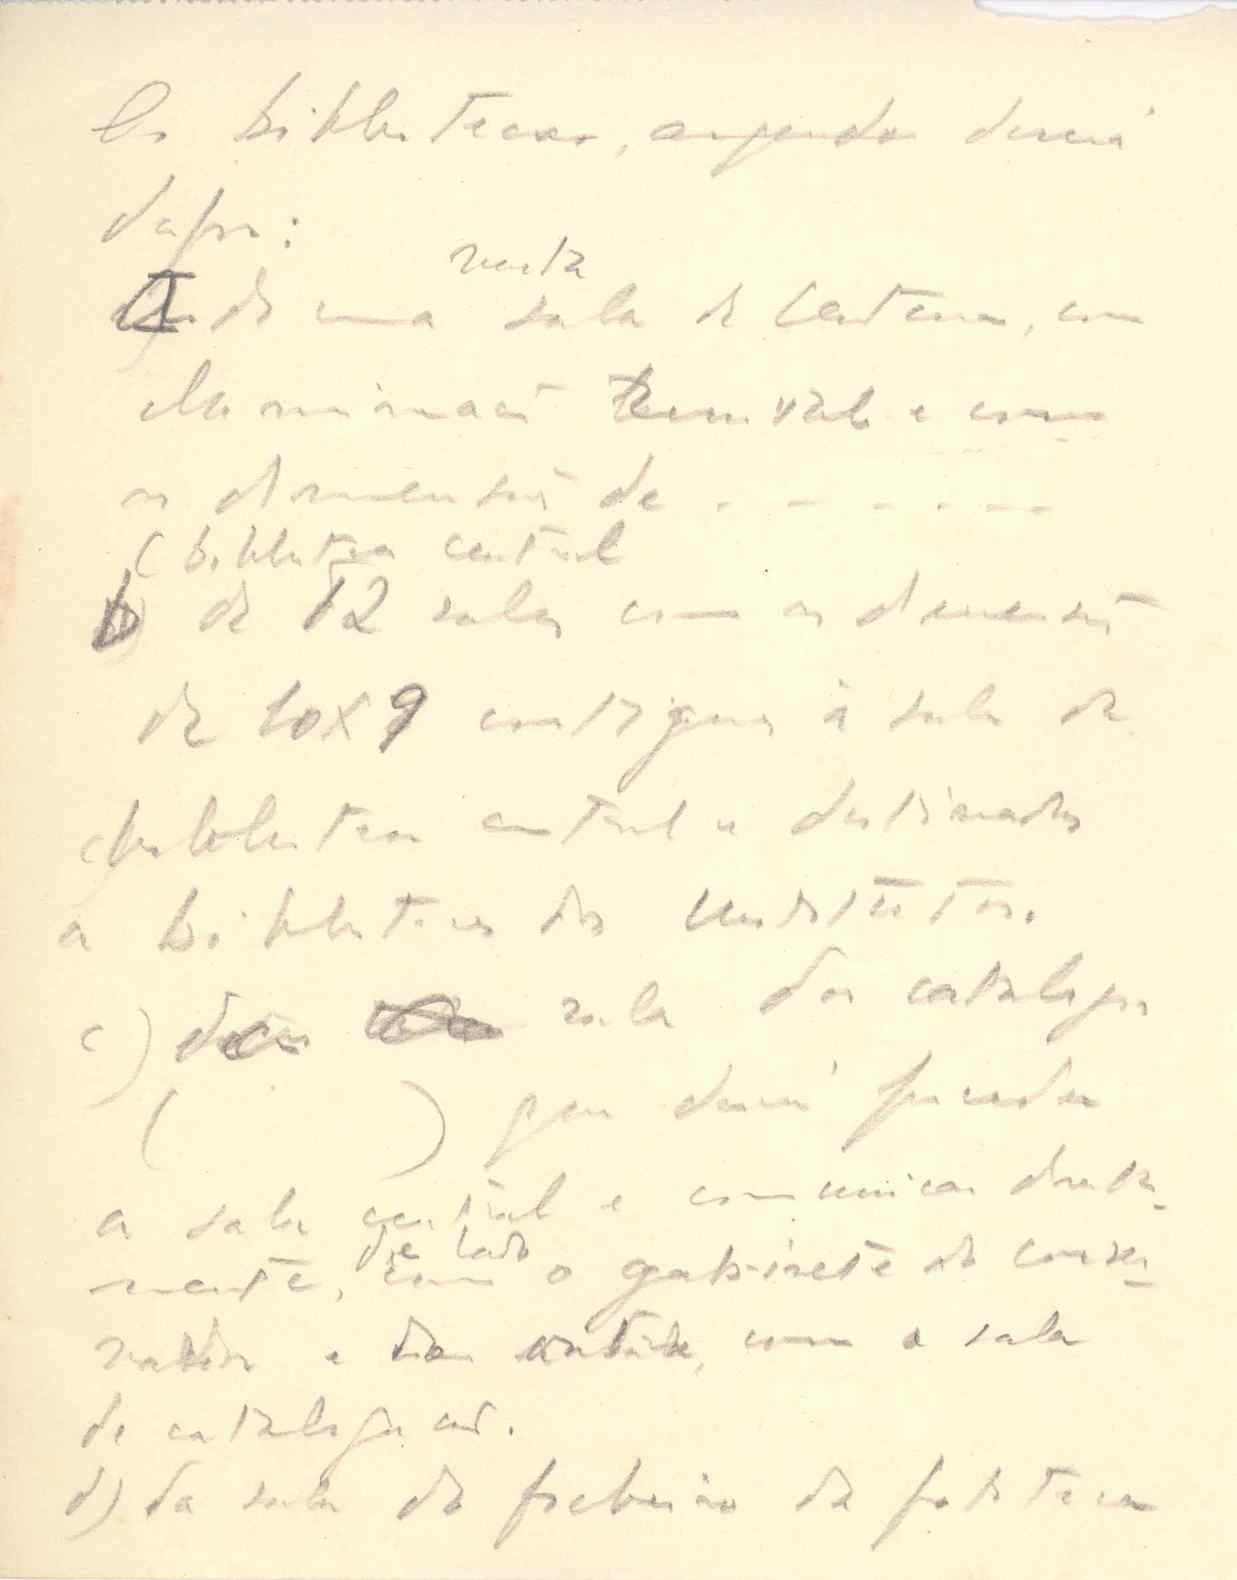 As bibliotecas, segundo deverá
dispor:
vasta
a) de uma sala de leitura, com
iluminação e com
as dimensões de - - - - - -
(biblioteca central
b) de 12 salas com as dimensões
de 10x9 contiguas à sala da
biblioteca central e destinadas
a bibliotecas dos Institutos.
c) da sala dos catalogos
( ) que deverá preceder
a sala central e comunicar directa-
de lado
mente, com o gabinete do conser-
vador e do outro, com a sala
de catalogação.
d) da sala do ficheiro da fototeca